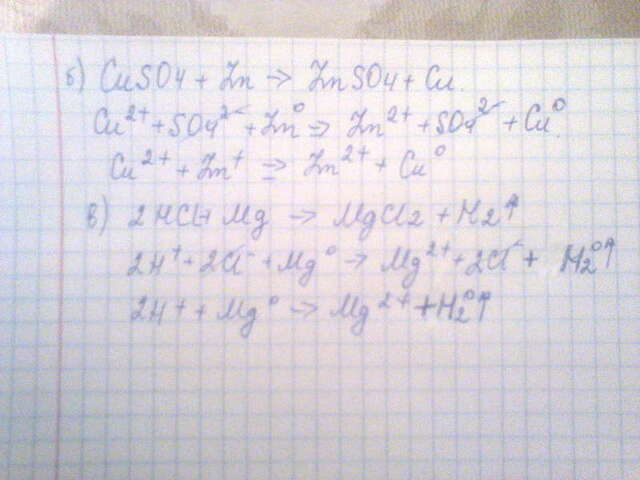 б) CuSO4 + Zn → ZnSO4 + Cu
Cu²⁺ + SO4²⁻ + Zn⁰ ⇒ Zn²⁺ + SO4²⁻ + Cu⁰
Cu²⁺ + Zn⁺ ⇒ Zn²⁺ + Cu⁰
в) 2HCl + Mg → MgCl2 + H2↑
2H⁺ + 2Cl⁻ + Mg⁰ → Mg²⁺ + 2Cl⁻ + H2⁰↑
2H⁺ + Mg⁰ → Mg²⁺ + H2⁰↑